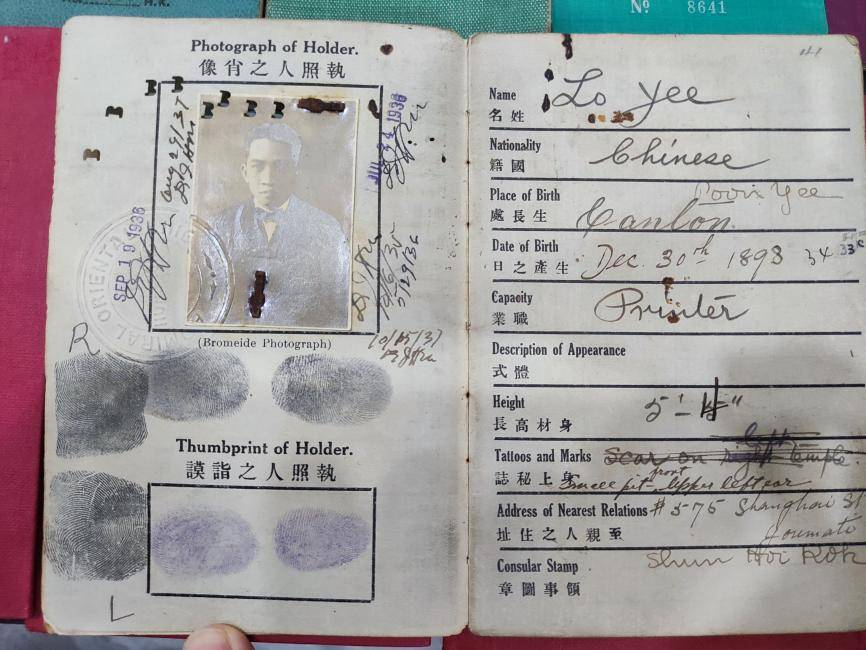 H.K.
Nº 8641
Photograph of Holder.
像肖之人照執
SEP 19 1936
Aug 29/37
1936
10/15/37
ORIENTAL
(Bromeide Photograph)
R
Thumbprint of Holder.
謨詣之人照執
L
Name Lo Yee
名姓
Nationality Chinese
籍國
Place of Birth Canton
處長生
Date of Birth Dec. 30th 1898 34
日之產生
Capacity Printer
業職
Description of Appearance
式體
Height 5'-
長高材身
Tattoos and Marks Scar on right temple left
誌秘上身 Small pit front upper left ear
Address of Nearest Relations #575 Shanghai St
址住之人親至 Youmati
Consular Stamp Shun Hoi Kok
章圖事領